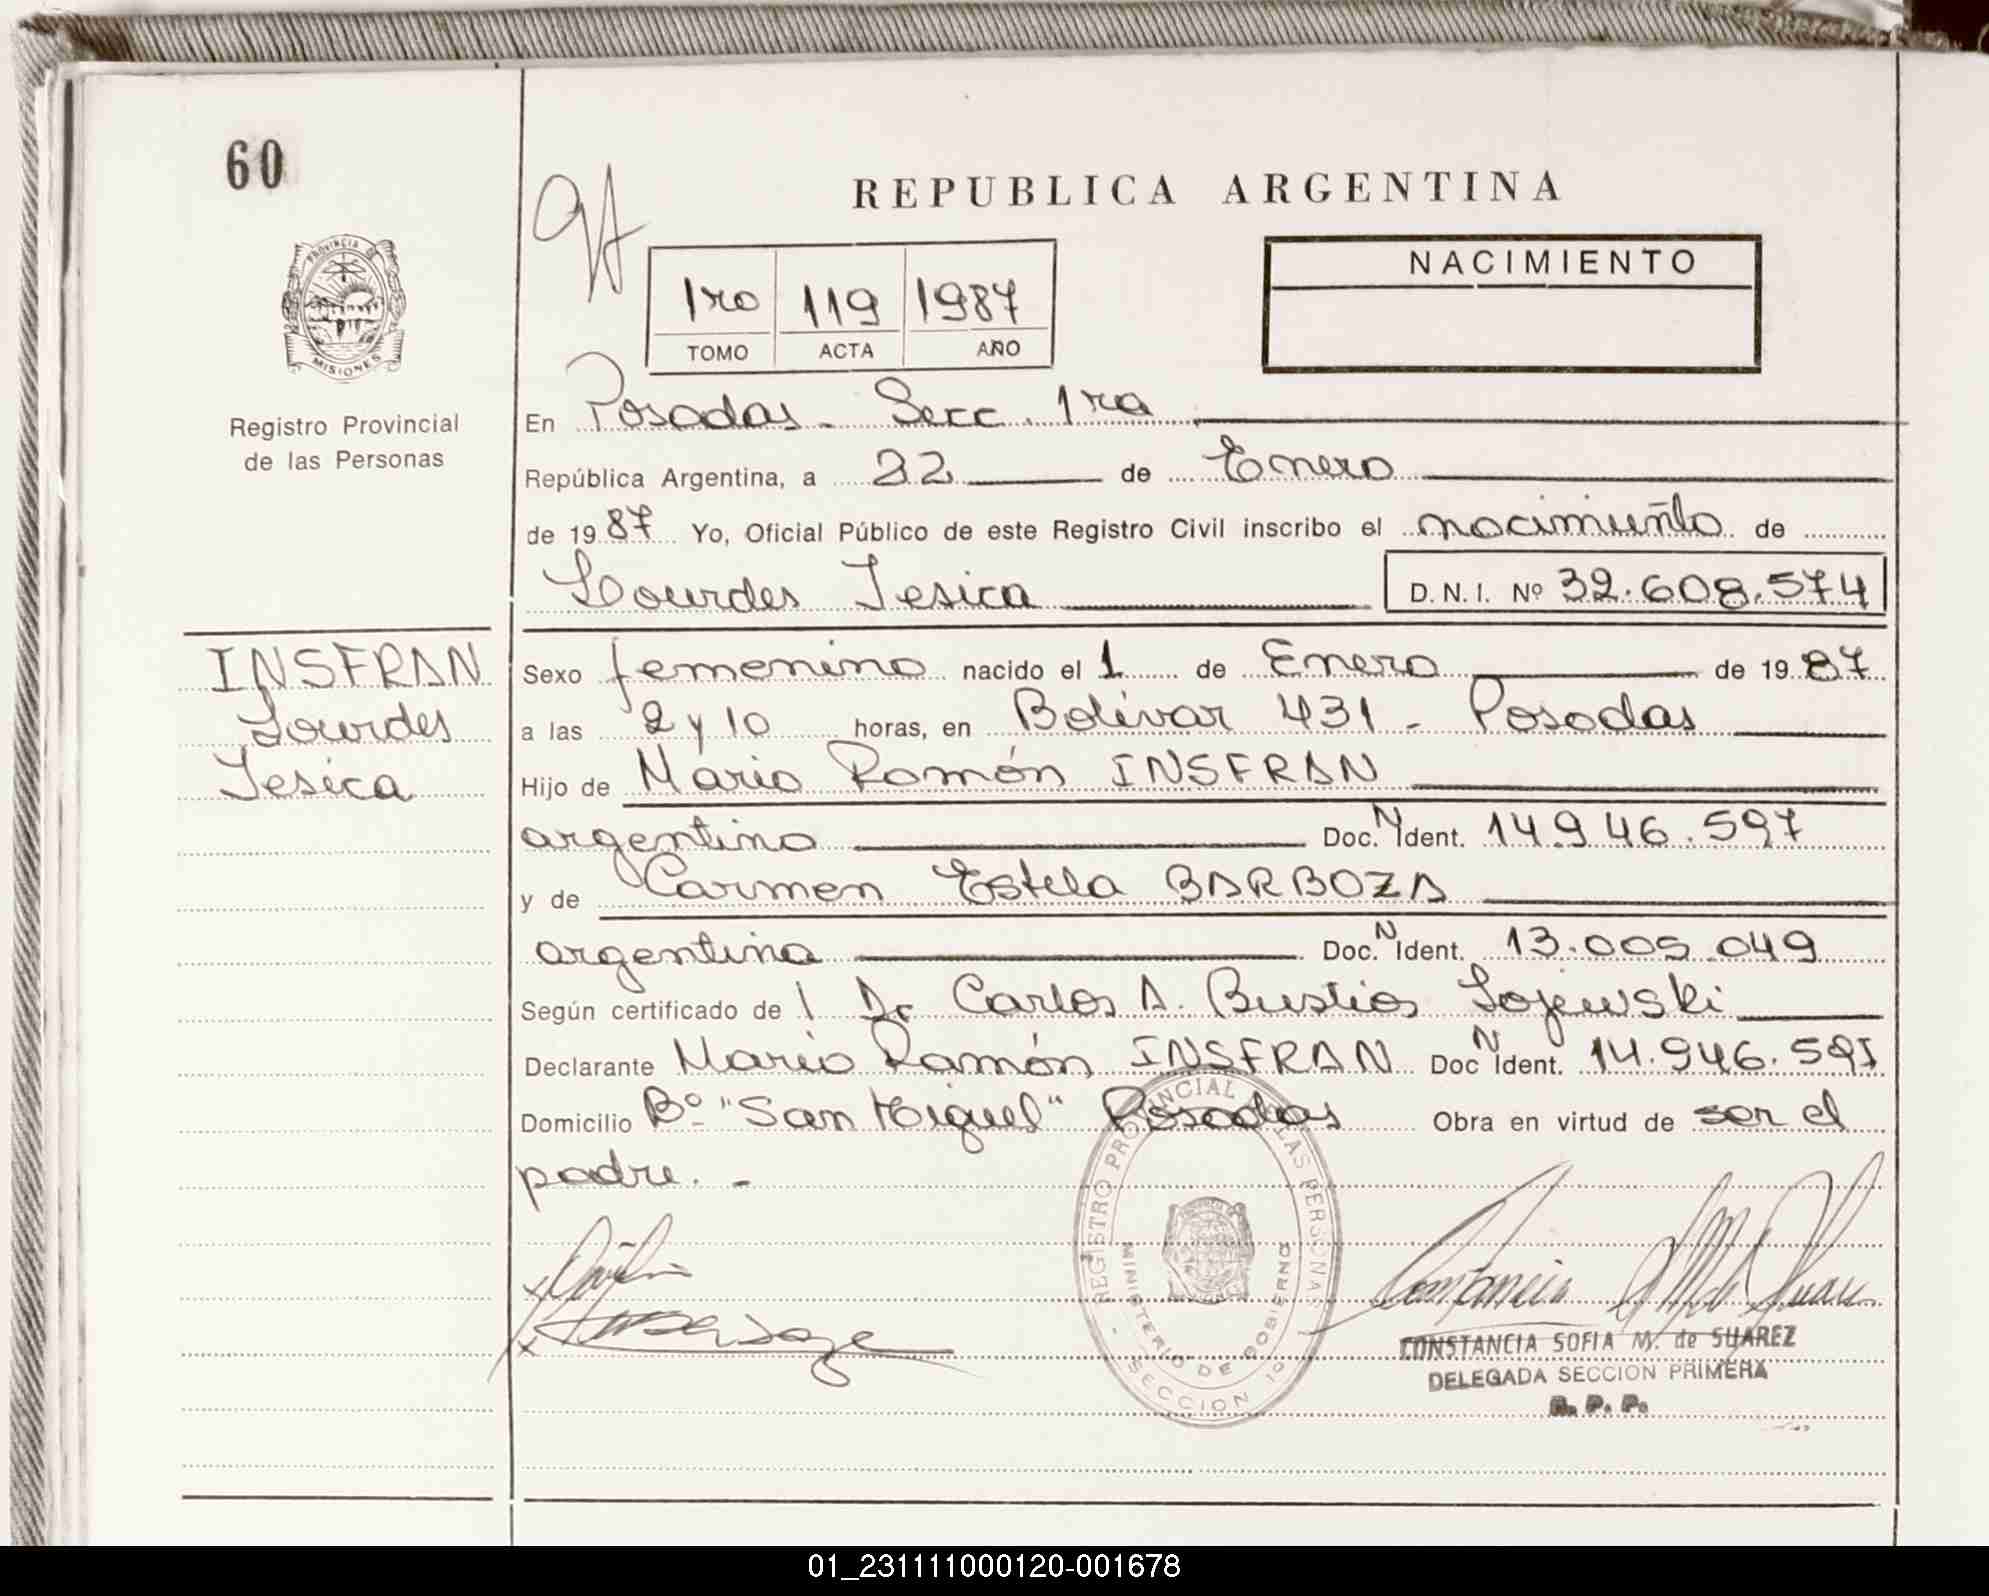 60
REPUBLICA ARGENTINA
NACIMIENTO
1ro 119 1987
TOMO ACTA AÑO
PROVINCIA DE
MISIONES
Registro Provincial
de las Personas
En Posadas - Secc. 1ra
República Argentina, a 22 de Enero
de 1987 Yo, Oficial Público de este Registro Civil inscribo el nacimiento de
Lourdes Jesica D.N.I. Nº 32.608.574
INSFRAN
Lourdes
Jesica
Sexo femenino nacido el 1 de Enero de 1987
a las 2 y 10 horas, en Bolívar 431 - Posadas
Hijo de Mario Ramón INSFRAN
argentino Doc. N Ident. 14.946.597
y de Carmen Estela BARBOZA
argentina Doc. N Ident. 13.005.049
Según certificado de Dr Carlos A. Bustios Lojewski
Declarante Mario Ramón INSFRAN Doc N Ident. 14.946.597
Domicilio Bº "San Miguel" Posadas Obra en virtud de ser el
padre. -
REGISTRO PROVINCIAL DE LAS PERSONAS
MINISTERIO DE GOBIERNO
- SECCION 1º -
CONSTANCIA SOFIA M. de SUAREZ
DELEGADA SECCION PRIMERA
R. P. P.
01_231111000120-001678